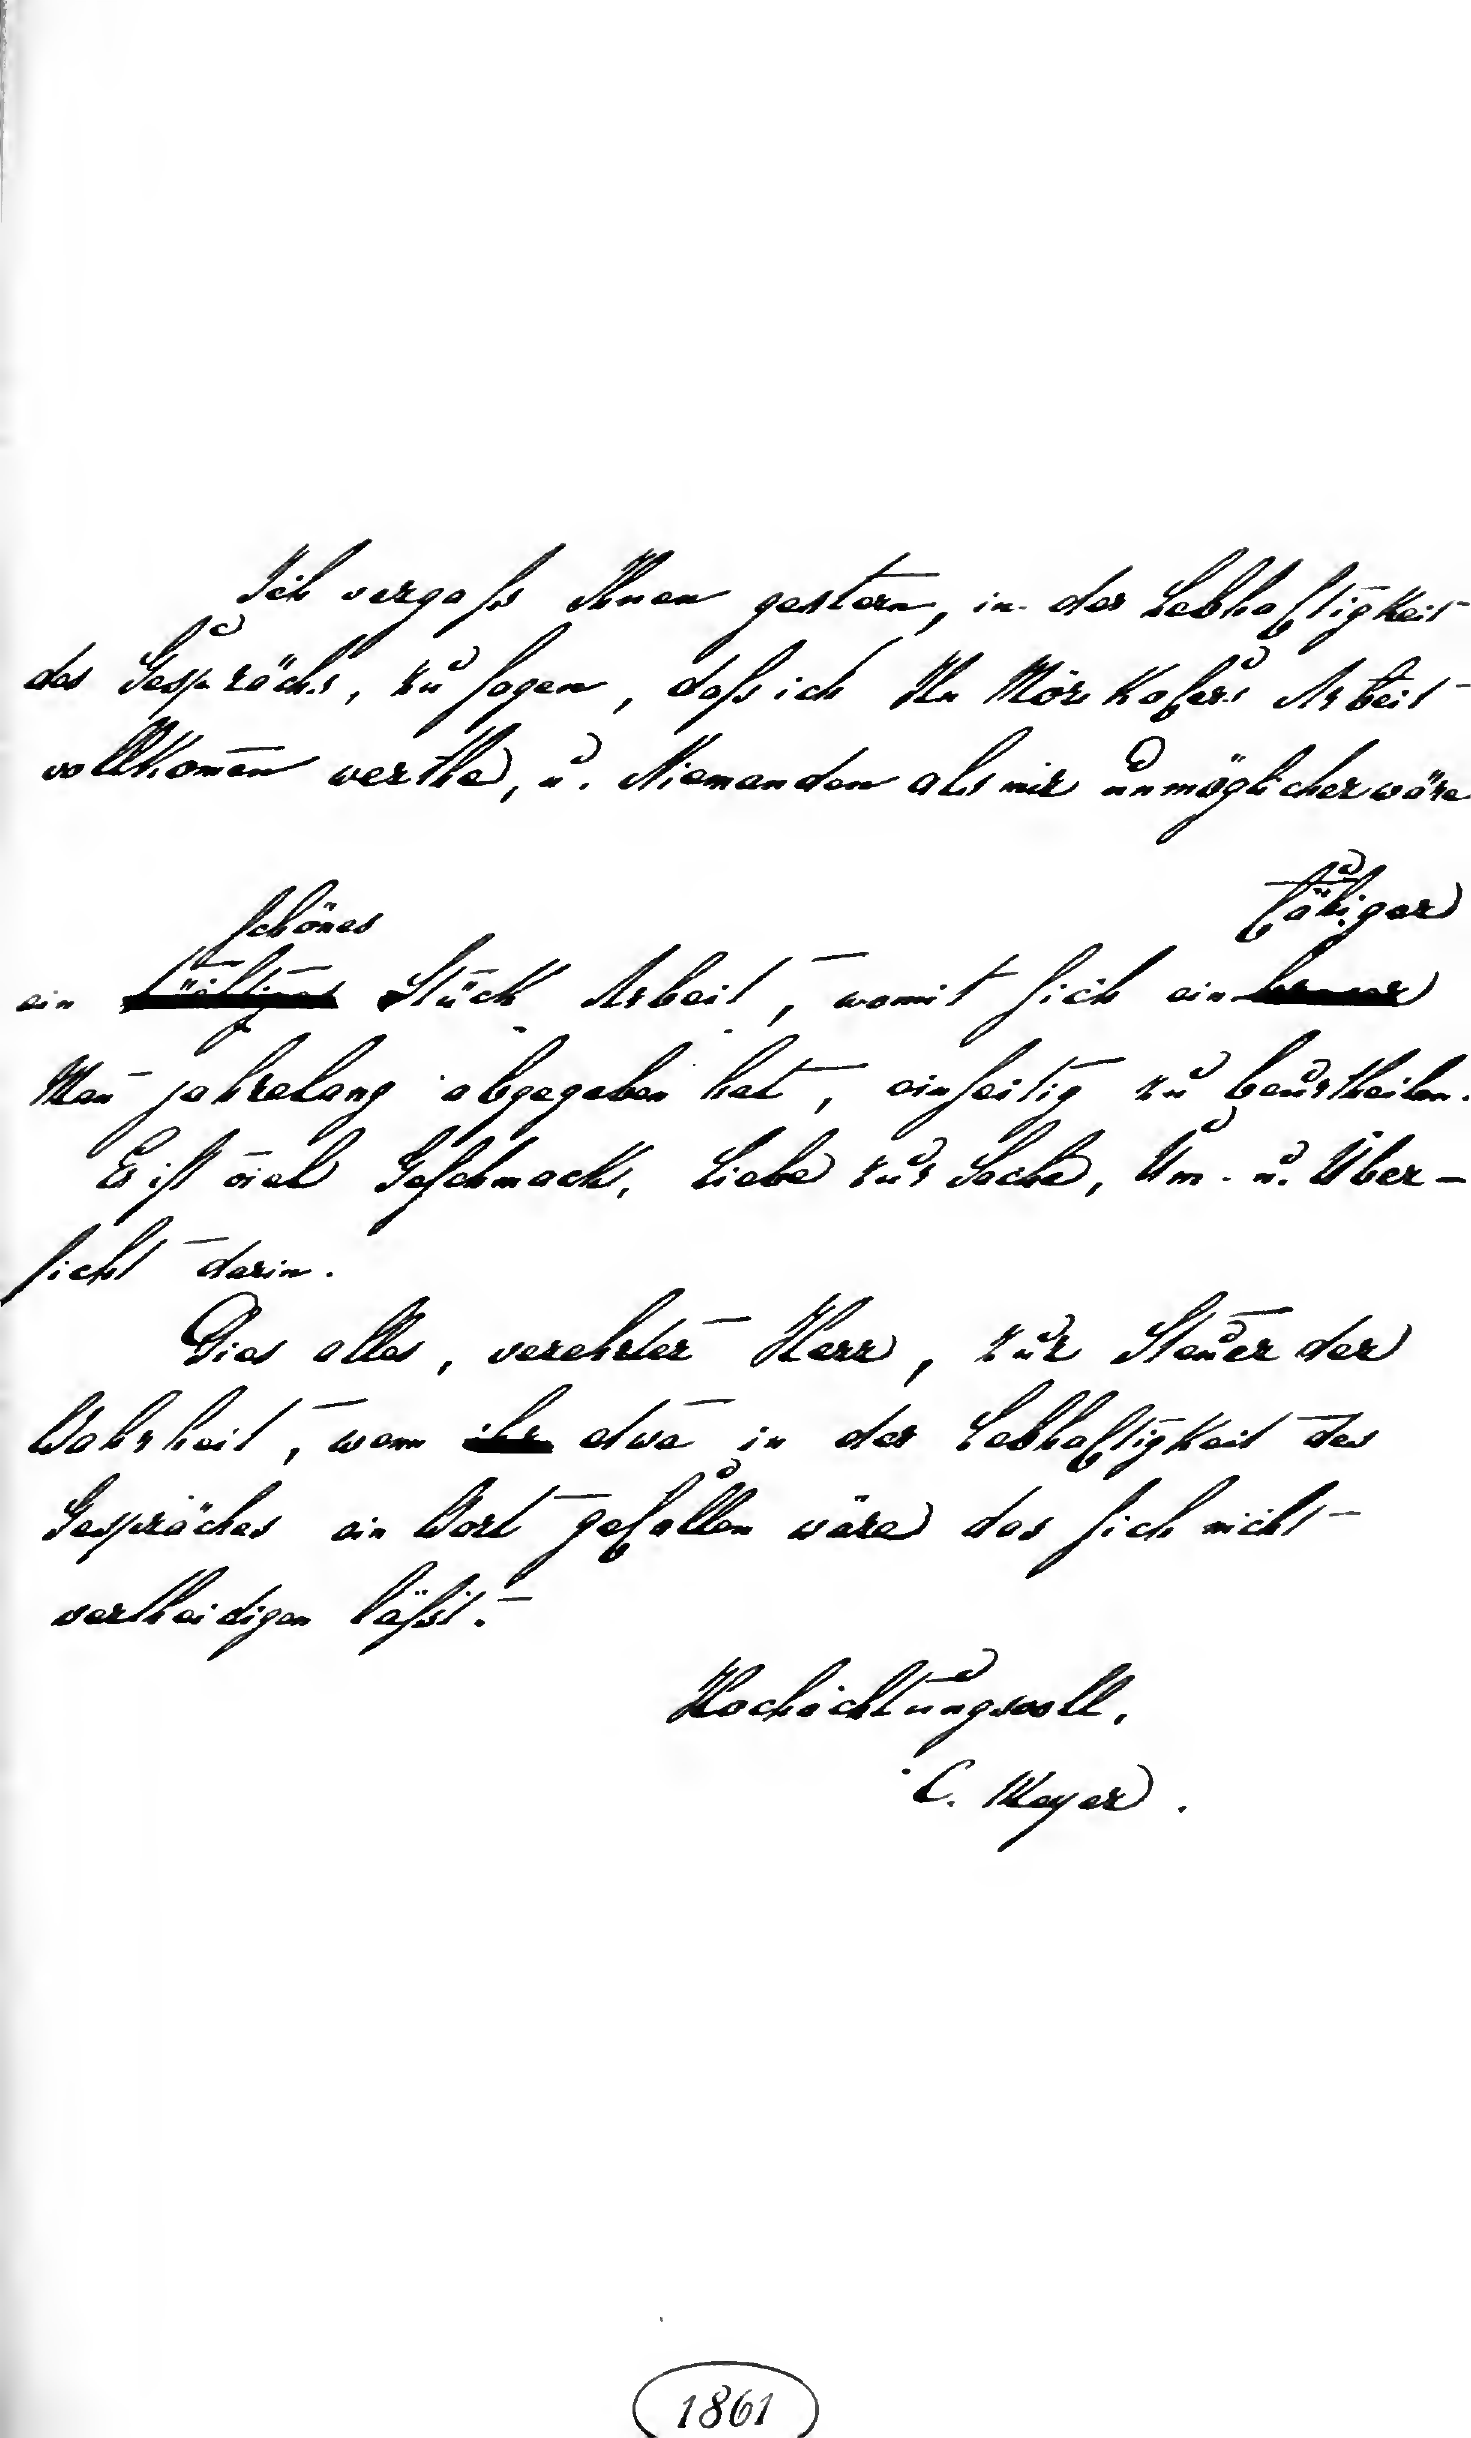 Ich vergaß Ihnen gestern, in der Lebhaftigkeit
des Gesprächs, zu sagen, daß ich Hn Mörikofers Arbeit
vollkom̄en werthe, u. Niemanden als mir unmöglicher wäre
schönes fähiger
ein Stück Arbeit, womit sich ein
Man̄ jahrelang abgegeben hat, einseitig zu beurtheilen.
Es ist viel Geschmack, Liebe zur Sache, Um- u. Über-
sicht darin.
Dies alles, verehrter Herr, zur Steuer der
Wahrheit, wenn ihr etwa in der Lebhaftigkeit des
Gespräches ein Wort gefallen wäre das sich nicht
vertheidigen läßt.
Hochachtungsvoll.
C. Meyer.
1861